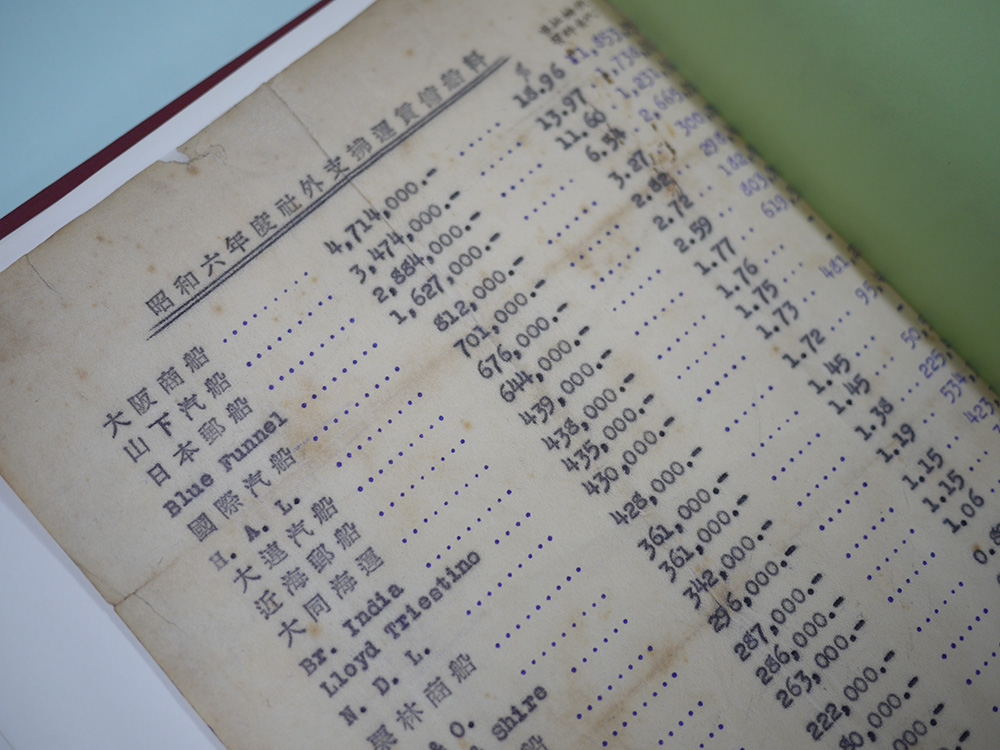 昭和六年度社外支拂運賃傭船料
%
大阪商船 4,714,000.- 18.96
山下汽船 3,474,000.- 13.97
日本郵船 2,884,000.- 11.60
Blue Funnel 1,627,000.- 6.54
國際汽船 812,000.- 3.27
H. A. L. 701,000.- 2.82
大連汽船 676,000.- 2.72
近海郵船 644,000.- 2.59
大同海運 439,000.- 1.77
Br. India 438,000.- 1.76
Lloyd Triestino 435,000.- 1.75
N. D. L. 430,000.- 1.73
栗林商船 428,000.- 1.72
& O. 361,000.- 1.45
Shire 361,000.- 1.45
船 342,000.- 1.38
296,000.- 1.19
287,000.- 1.15
286,000.- 1.15
263,000.- 1.06
222,000.-